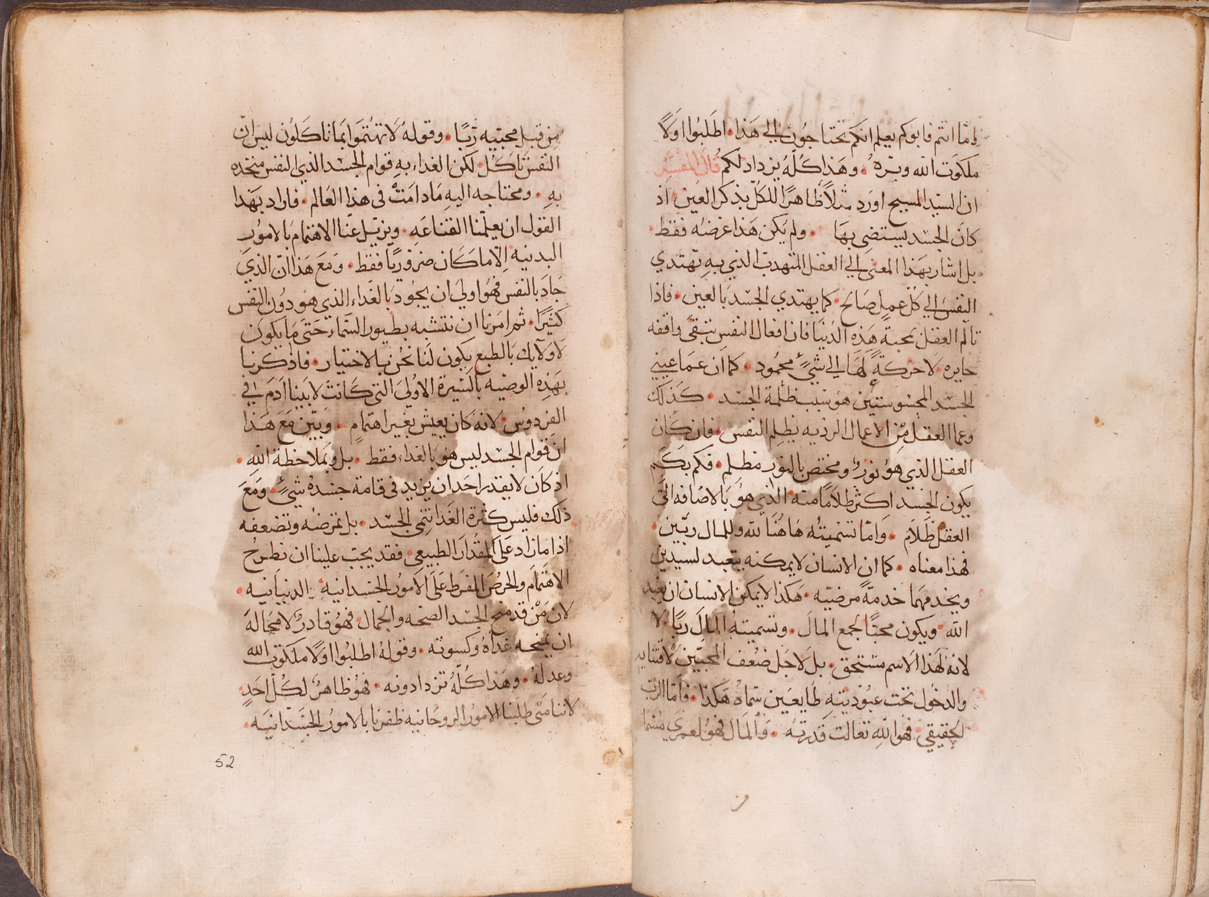 وامّا انتم فابوكم يعلم انكم تحتاجون الى هذا • اطلبوا اوّلاً
ملكوت الله وبره • وهذا كلّه يزداد لكم قال المفسّر
ان السيّد المسيح اورد مثلاً ظاهراً للكلّ بذكر العين • اذ
كان الجسد يستضى بها • ولم يكن هذا غرضه فقط •
بل اشار بهذا المعنى الى العقل المتهدب الذي به تهتدي
النفس الى كلّ عمل صالح • كما يهتدي الجسد بالعين • فاذا
تالم العقل بمحبة هذه الدنيا فان افعال النفس تبقى واقفه
حايره • لا حركةٍ لها الى شيٍ محمود • كما ان عما عيني
الجسد المحسوستين هو سبب ظلمة الجسد • كذلك
وعما العقل من الاعمال الرديه يظلم النفس • فان كان
العقل الذي هو نورٌ ومختص بالنور مظلم • فكم بكم
يكون الجسد اكثر ظلاماً منه • الذي هو بالاضافه الى
العقل ظلام • وامّا تسميته هاهنا لله وللمال ربّين •
فهذا معناه • كما ان الانسان لا يمكنه يتعبد لسيدين
ويخدمهما خدمةً مرضيه • هكذا لا يمكن الانسان ان يعبد
الله ويكون محبّاً لجمع المال • وتسميته المال ربّاً • لا
لانه لهذا الاسم مستحق • بل لاجل ضعف المحبّين لاقتنايه
والدخول تحت عبوديته طايعين سماه هكذا • فامّا الربّ
الحقيقي • فهو الله تعالت قدرته • والمال فهو لعمري
من قبل محبّيه ربّاً • وقوله لا تهتموا بما تاكلون ليس ان
النفس تاكل • لكن الغداء به قوام الجسد الذي النفس متحده
به • ومحتاجه اليه ما دامت في هذا العالم • فاراد بهذا
القول ان يعلمنا القناعه • ويزيل عنا الاهتمام بالامور
البدنيه الا ما كان ضرورياً فقط • ومع هذا ان الذي
جاد بالنفس فهو اولى ان يجود بالغداء الذي هو دون النفس
كثيراً • ثم امرنا ان نتشبه بطيور السماء • حتى ما يكون
لاولايك بالطبع يكون لنا نحن بالاختيار • فاذكرنا
بهذه الوصيه بالسيرة الاولى التي كانت لابينا ادم في
الفردوس • لانه كان يعيش بغير اهتمامٍ • وبيّن مع هذا
ان قوام الجسد ليس هو بالغداء فقط • بل وبملاحظة الله •
اذ كان لا يقدر احد ان يزيد في قامة جسده شيٍ • ومع
ذلك فليس كثرة الغدا تنمي الجسد • بل تمرضه وتضعفه
اذا ما زاد على المقدار الطبيعي • فقد يجب علينا ان نطرح
الاهتمام والحرص المفرط على الامور الجسدانيه • الدنيانيه •
لان من قد منح الجسد الصحه والجمال • فهو قادر لا محاله
ان يمنحه غداه وكسوته • وقوله اطلبوا اوّلاً ملكوت الله
وعدله • وهذا كلّه تزدادونه • فهو ظاهر لكلّ احدٍ
لاننا متى طلبنا الامور الروحانيه ظفرنا بالامور الجسدانيه •
52